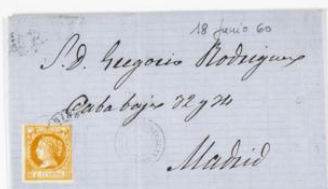 18 Junio 60
S. D. Gregorio Rodriguez
Caba baja 32 y 34
Madrid
4 CUARTOS